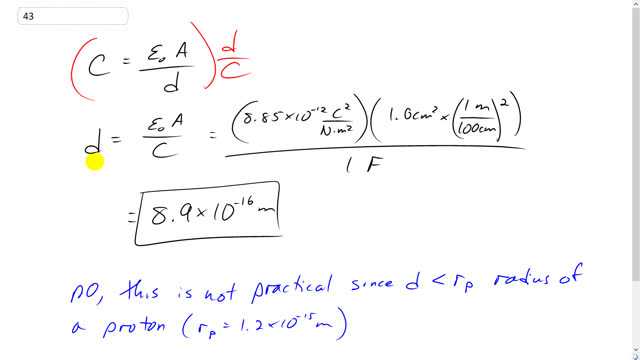 43
( C = ε₀ A / d ) d / C
d = ε₀ A / C = (8.85 × 10⁻¹² C² / N·m²) (1.0 cm² × (1 m / 100 cm)²) / 1 F
= 8.9 × 10⁻¹⁶ m
no, this is not practical since d < rₚ radius of
a proton ( rₚ = 1.2 × 10⁻¹⁵ m )